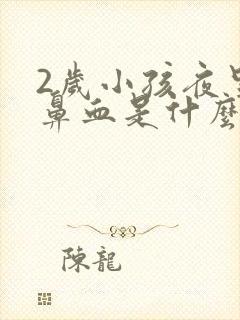 2歲小孩夜
鼻血是什麼
陳龍